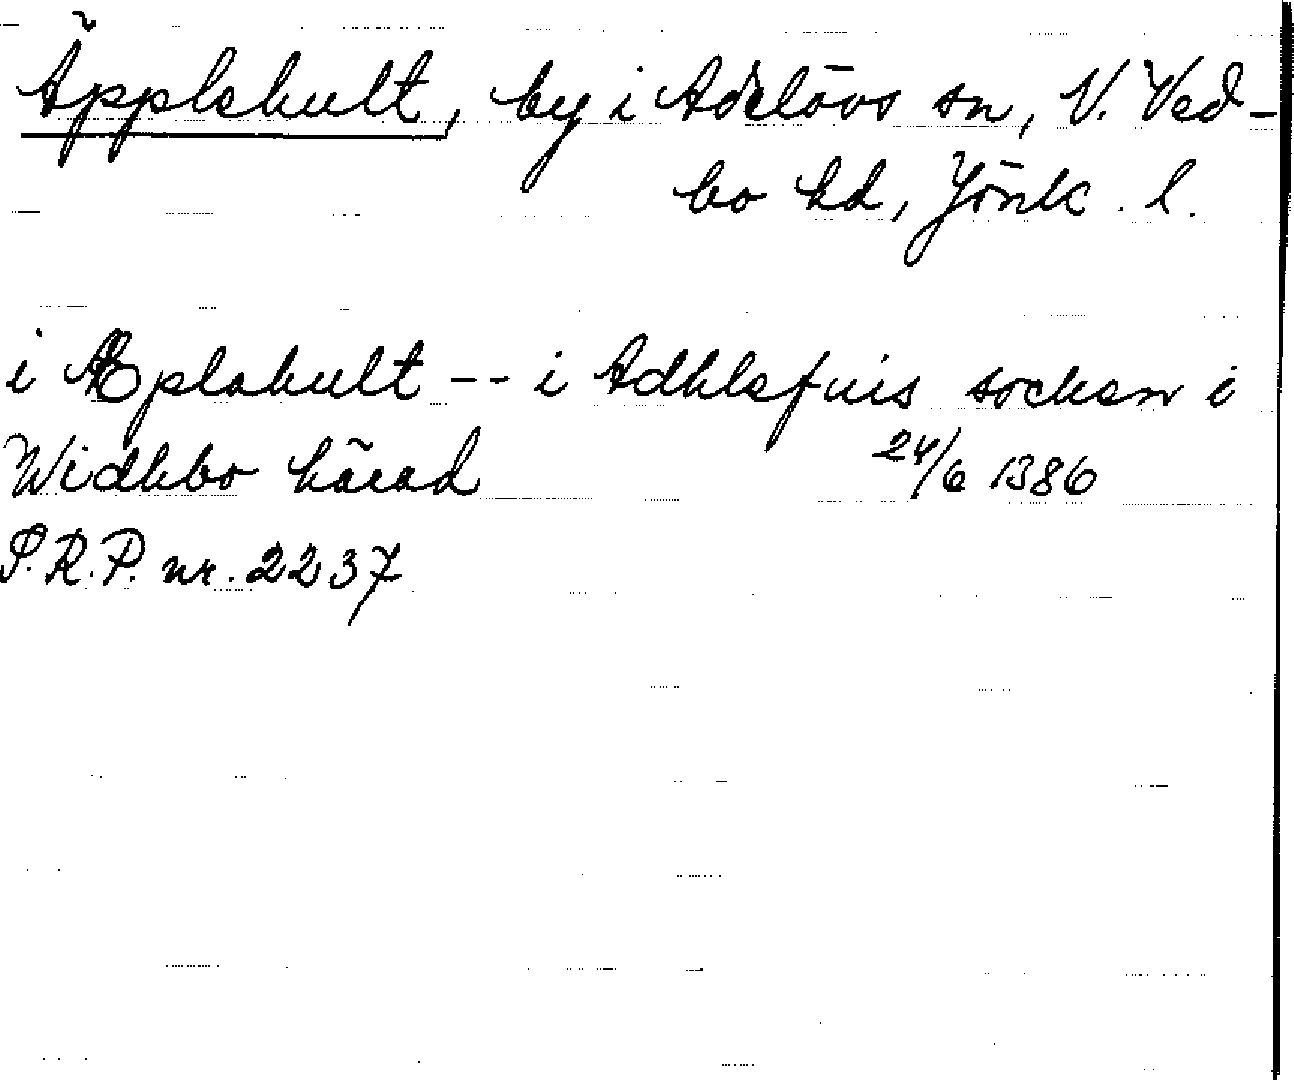 Äpplehult, by i Adelövs sn, V. Ved-
bo hd, Jönk. l.
i Æplahult -- i Adhlefuis socken i
Widhbo härad 24/6 1386
S.R.P. nr. 2237